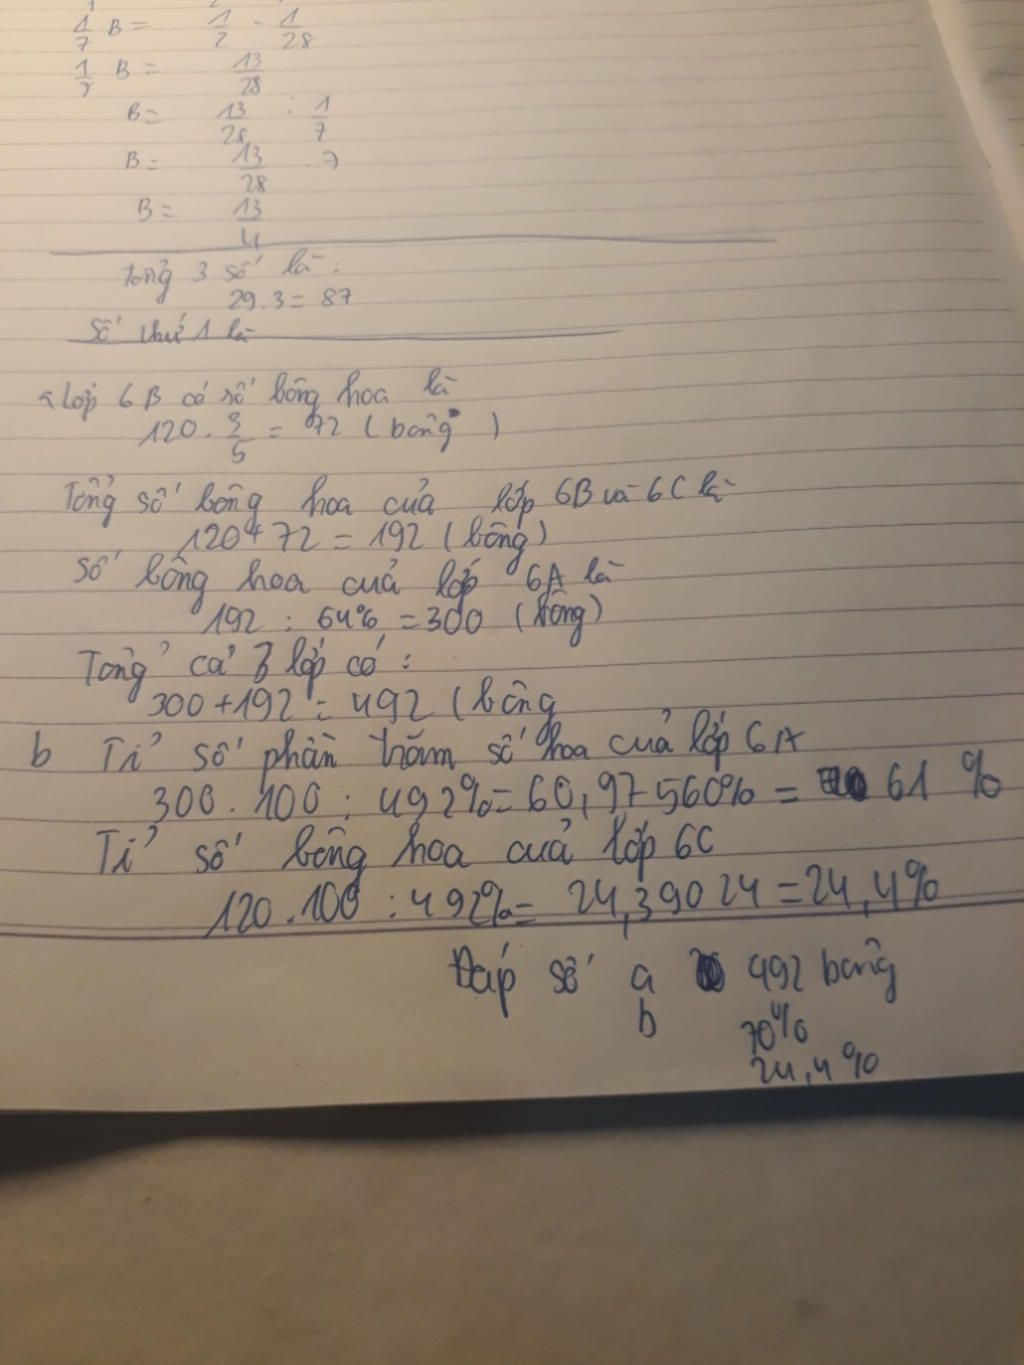 1/7 B = 1/2 - 1/28
1/7 B = 13/28
B = 13/28 : 1/7
B = 13/28 . 7
B = 13/4
Tổng 3 số là :
29.3 = 87
Số thứ 1 là
a Lớp 6B có số bông hoa là
120 . 3/5 = 72 ( bông )
Tổng số bông hoa của lớp 6B và 6C là
120 + 72 = 192 ( bông)
Số bông hoa của lớp 6A là
192 : 64% = 300 ( bông)
Tổng cả 3 lớp có :
300 + 192 = 492 ( bông
b Tỉ số phần trăm số hoa của lớp 6A
300 . 100 : 492% = 60,97560% = 61 %
Tỉ số bông hoa của lớp 6C
120 . 100 : 492% = 24,39024 = 24,4%
Đáp số a 492 bông
b 70%
24,4%